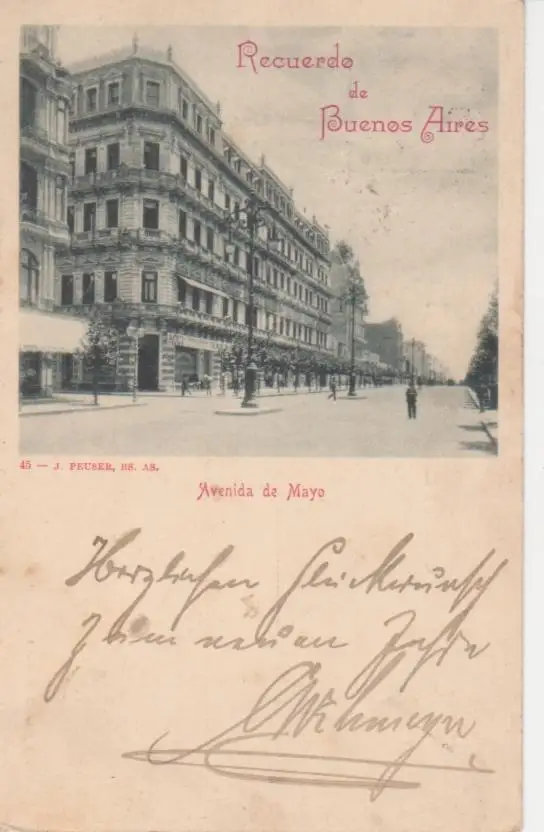 Recuerdo
de
Buenos Aires
45 — J. PEUSER, BS. AS.
Avenida de Mayo
Herzlichen Glückwunsch
zum neuen Jahre